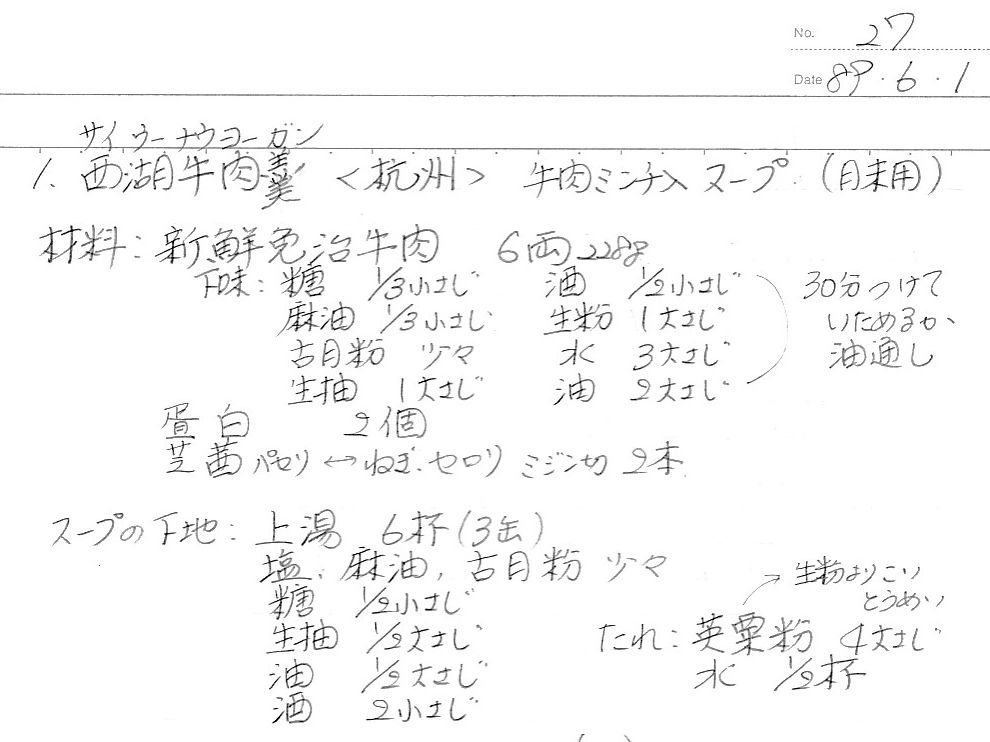 No. 27
Date 89.6.1
サイウーナウヨーガン
1. 西湖牛肉羹 <杭州> 牛肉ミンチ入スープ (月末用)
材料: 新鮮免治牛肉 6両 228g
下味: 糖 1/3小さじ 酒 1/2小さじ 30分つけて
麻油 1/3小さじ 生粉 1大さじ いためるか、
古月粉 少々 水 3大さじ 油通し
生抽 1大さじ 油 2大さじ
蛋白 2個
芝茜 パセリ ↔ ねぎ、セロリ ミジン切 2本
スープの下地: 上湯 6杯(3缶)
塩、麻油、古月粉 少々 → 生粉よりこい
糖 1/2小さじ とうめい
生抽 1/2大さじ たれ: 英粟粉 4大さじ
油 1/2大さじ 水 1/2杯
酒 2小さじ